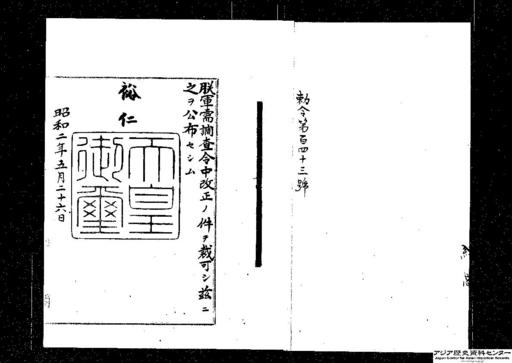 勅令第百四十三號
朕軍需調査令中改正ノ件ヲ裁可シ茲ニ
之ヲ公布セシム
裕仁
天皇
御璽
昭和二年五月二十六日
アジア歴史資料センター
Japan Center for Asian Historical Records